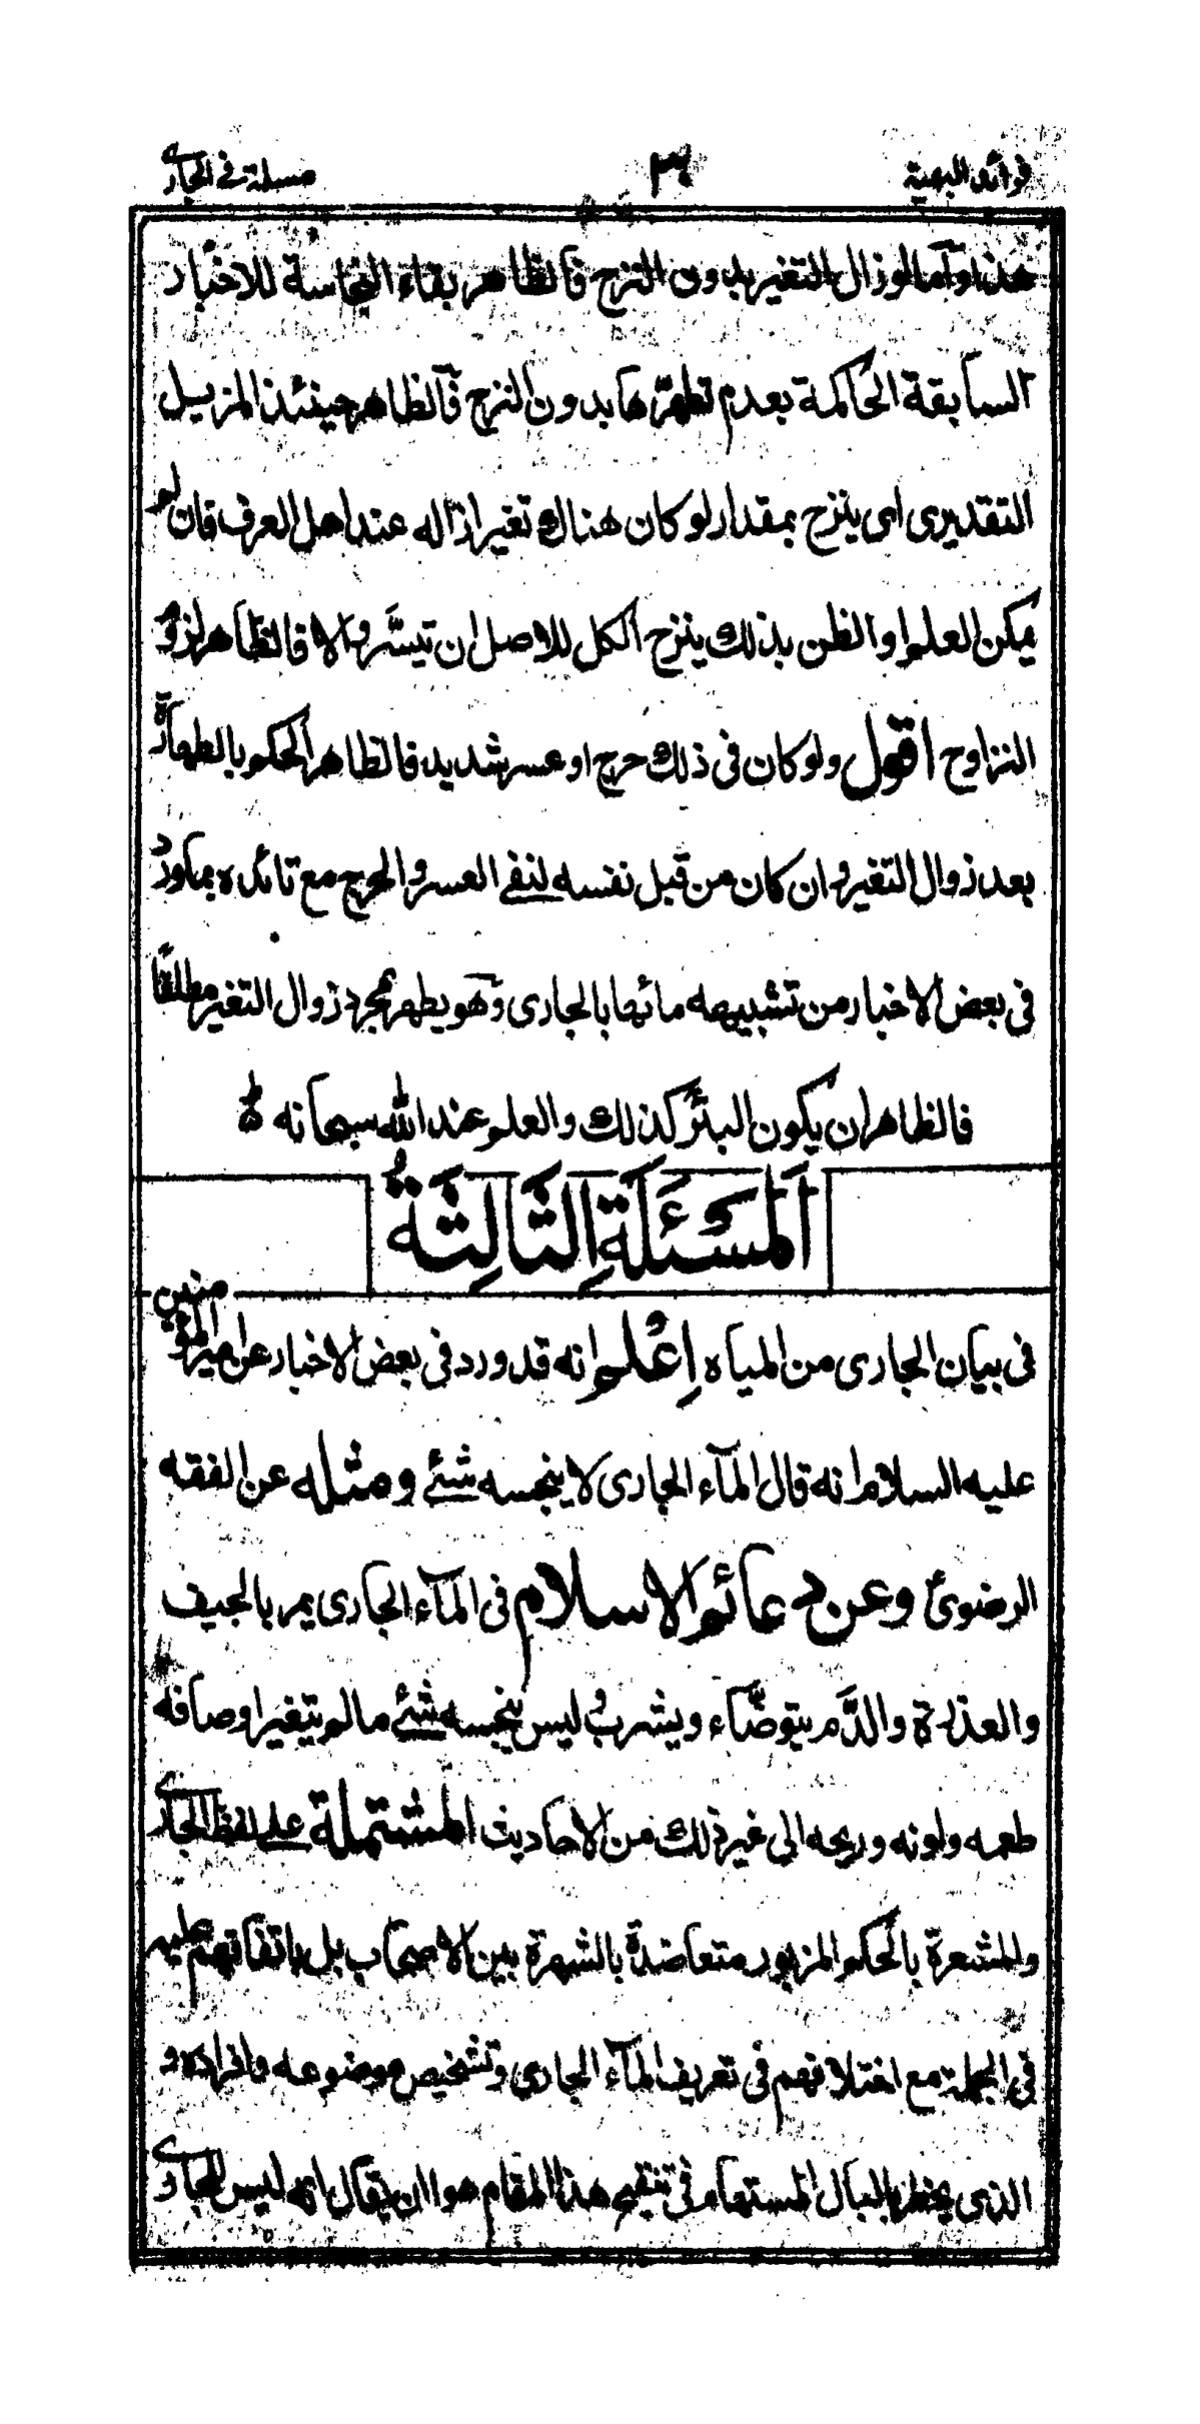 فوائد البهية ٣٤ مسئلة في الجاري
هذا وآما لو زال التغير بدون النزح فالظاهر بقاء النجاسة للاخبار
السابقة الحاكمة بعدم تطهرها بدون النزح فالظاهر حينئذ المزيل
التقديرى اى ينزح بمقدار لو كان هناك تغير ازاله عند اهل العرف فان لم
يمكن العلم او الظن بذلك ينزح الكل للاصل ان تيسّر والا فالظاهر لزوم
النزاوح اقول ولو كان فى ذلك حرج او عسر شديد فالظاهر الحكم بالطهارة
بعد زوال التغير وان كان من قبل نفسه لنفے العسر والحرج مع تائده بماورد
فى بعض الاخبار من تشبيهه مائها بالجارى وهو يطهر بمجرد زوال التغير مطلقًا
فالظاهر ان يكون البئر كذلك والعلم عند الله سبحانه
اَلْمَسْئَلَةُ الثَّالِثَةُ
فى بيان الجارى من المياه اِعْلم انه قد ورد فى بعض الاخبار عن امير المؤمنين
عليه السلام انه قال المآء الجارى لا ينجسه شئے ومثله عن الفقه
الرضوىّ وعن دعائم الاسلام فى المآء الجارى يمر بالجيف
والعذرة والدَّم يتوضّاء ويشرب وليس ينجسه شئے مالم يتغير اوصافه
طعمه ولونه وريحه الى غير ذلك من الاحاديث المشتملة على لفظ الجارى
والمشعرة بالحكم المزبور متعاضدة بالشهرة بين الاصحاب بل باتفاقهم عليه
فى الجملة مع اختلافهم فى تعريف المآء الجارى وتشخيص موضوعه وافراده و
الذى يخطر بالبال المستهام فى تنقيح هذا المقام هو ان يقال انه ليس للجارى